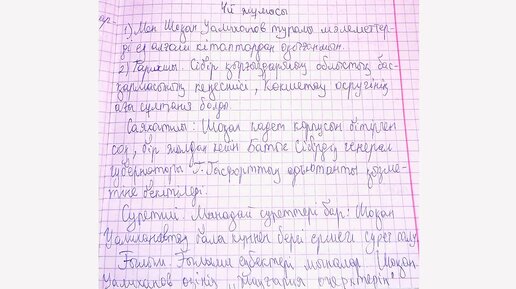 Үй жұмысы
1) Мен Шоқан Уалиханов туралы мәлеметтер-
ді ең алғаш кітаптардан оқығанмын.
2) Тарихшы. Сібір қырғыздарының облыстық бас-
қармасының кеңесшісі, Көкшетау округінің
аға сұлтаны болды.
Саяхатшы: Шоқан кадет корпусын бітірген
соң, бір жылдан кейін Батыс Сібірдің генерал
губернаторы Г. Гасфорттың адъютанты қызме-
тіне бекітіледі.
Суретші. Мынадай суреттері бар: Шоқан
Уалихановтың бала күннен бергі ермегі сурет салу.
Ғылым Ғылыми еңбектері мыналар Шоқан
Уалиханов өзінің „Жоңғария очерктері"